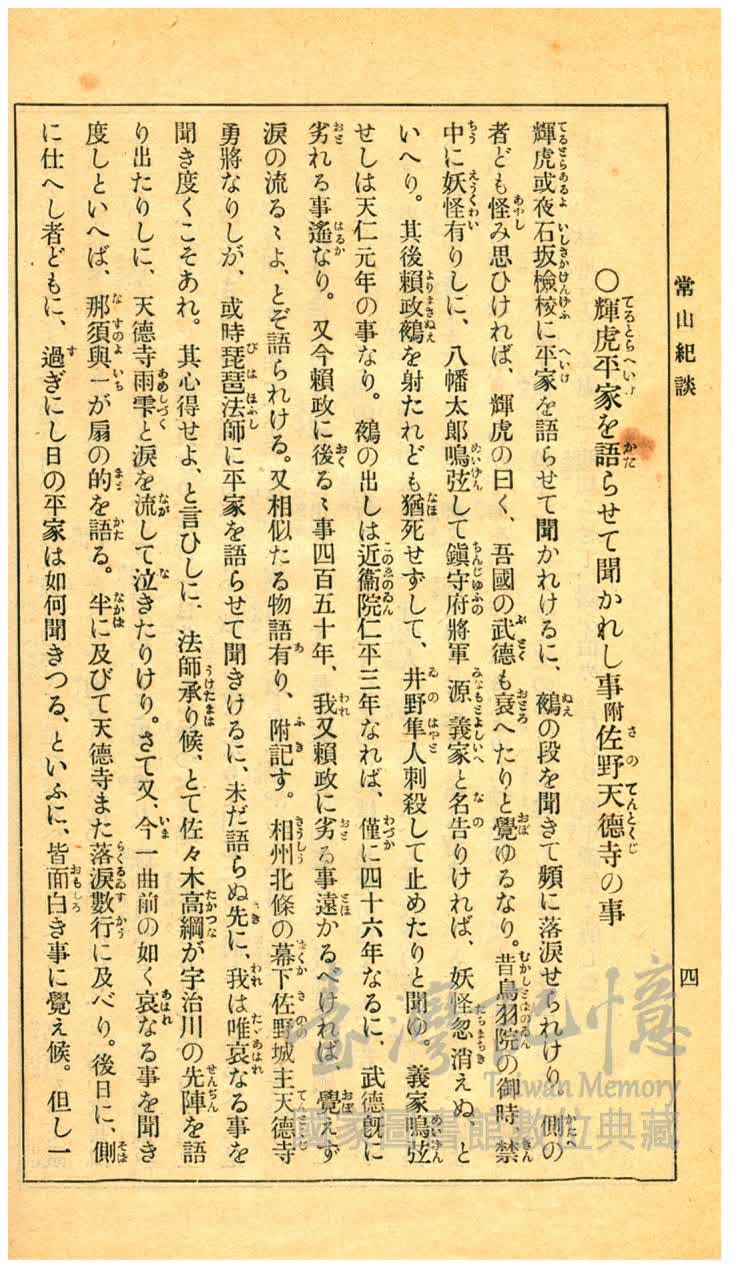 常山紀談
四
〇輝虎平家を語らせて聞かれし事附佐野天德寺の事
輝虎或夜石坂檢校に平家を語らせて聞かれけるに、鵺の段を聞きて頻に落淚せられけり、側の
者ども怪み思ひければ、輝虎の曰く、吾國の武德も衰へたりと覺ゆるなり。昔鳥羽院の御時。禁
中に妖怪有りしに、八幡太郞鳴弦して鎭守府將軍源義家と名告りければ、妖怪忽消えぬと
いへり。其後賴政鵺を射たれども猶死せずして、井野隼人刺殺して止めたりと聞ゆ。義家鳴弦
せしは天仁元年の事なり。鵺の出しは近衞院仁平三年なれば、僅に四十六年なるに、武德旣に
劣れる事遙なり。又今賴政に後るゝ事四百五十年、我又賴政に劣る事遠かるべければ、覺えず
淚の流るゝよ、とぞ語られける。又相似たる物語有り、附記す。相州北條の幕下佐野城主天德寺
勇將なりしが、或時琵琶法師に平家を語らせて聞きけるに、未だ語らぬ先に、我は唯哀なる事を
聞き度くこそあれ。其心得せよ、と言ひしに、法師承り候、とて佐々木高綱が宇治川の先陣を語
り出たりしに、天德寺雨雫と淚を流して泣きたりけり。さて又、今一曲前の如く哀なる事を聞き
度しといへば、那須與一が扇の的を語る。半に及びて天德寺また落淚數行に及べり。後日に、側
に仕へし者どもに、過ぎにし日の平家は如何聞きつる、といふに、皆面白き事に覺え候。但し一
臺灣記憶
Taiwan Memory
國家圖書館數位典藏